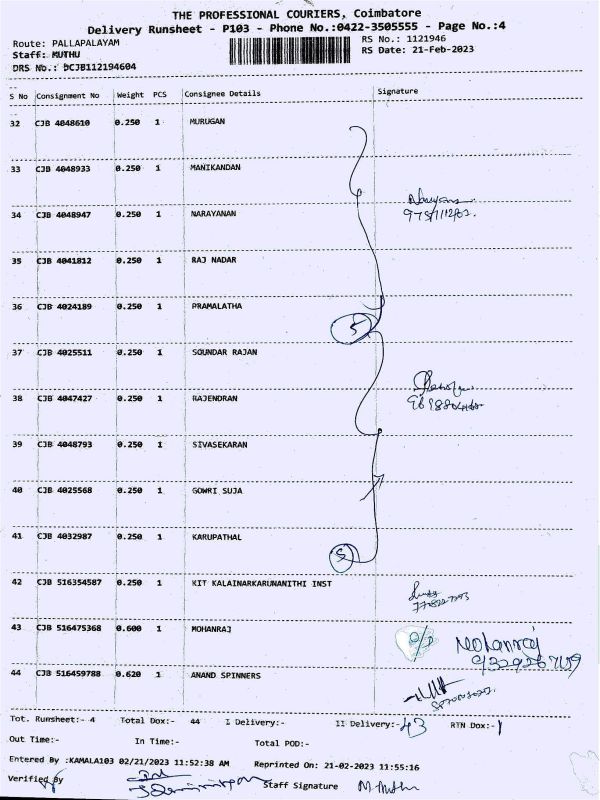 THE PROFESSIONAL COURIERS, Coimbatore
Delivery Runsheet - P103 - Phone No.:0422-3505555 - Page No.:4
Route: PALLAPALAYAM
RS No.: 1121946
Staff: MUTHU
RS Date: 21-Feb-2023
DRS No.: DCJB112194604
S No Consignment No Weight PCS Consignee Details Signature
32 CJB 4048610 0.250 1 MURUGAN
33 CJB 4048933 0.250 1 MANIKANDAN
34 CJB 4048947 0.250 1 NARAYANAN
35 CJB 4041812 0.250 1 RAJ NADAR
36 CJB 4024189 0.250 1 PRAMALATHA
5
37 CJB 4025511 0.250 1 SOUNDAR RAJAN
38 CJB 4047427 0.250 1 RAJENDRAN
39 CJB 4048793 0.250 1 SIVASEKARAN
40 CJB 4025568 0.250 1 GOWRI SUJA
41 CJB 4032987 0.250 1 KARUPATHAL
5
42 CJB 516354587 0.250 1 KIT KALAINARKARUNANITHI INST
43 CJB 516475368 0.600 1 MOHANRAJ
Mohanraj
44 CJB 516459788 0.620 1 ANAND SPINNERS
Tot. Runsheet:- 4 Total Dox:- 44 I Delivery:- II Delivery:- 43 RTN Dox:- 1
Out Time:- In Time:- Total POD:-
Entered By :KAMALA103 02/21/2023 11:52:38 AM Reprinted On: 21-02-2023 11:55:16
Verified By Staff Signature M. Muthu